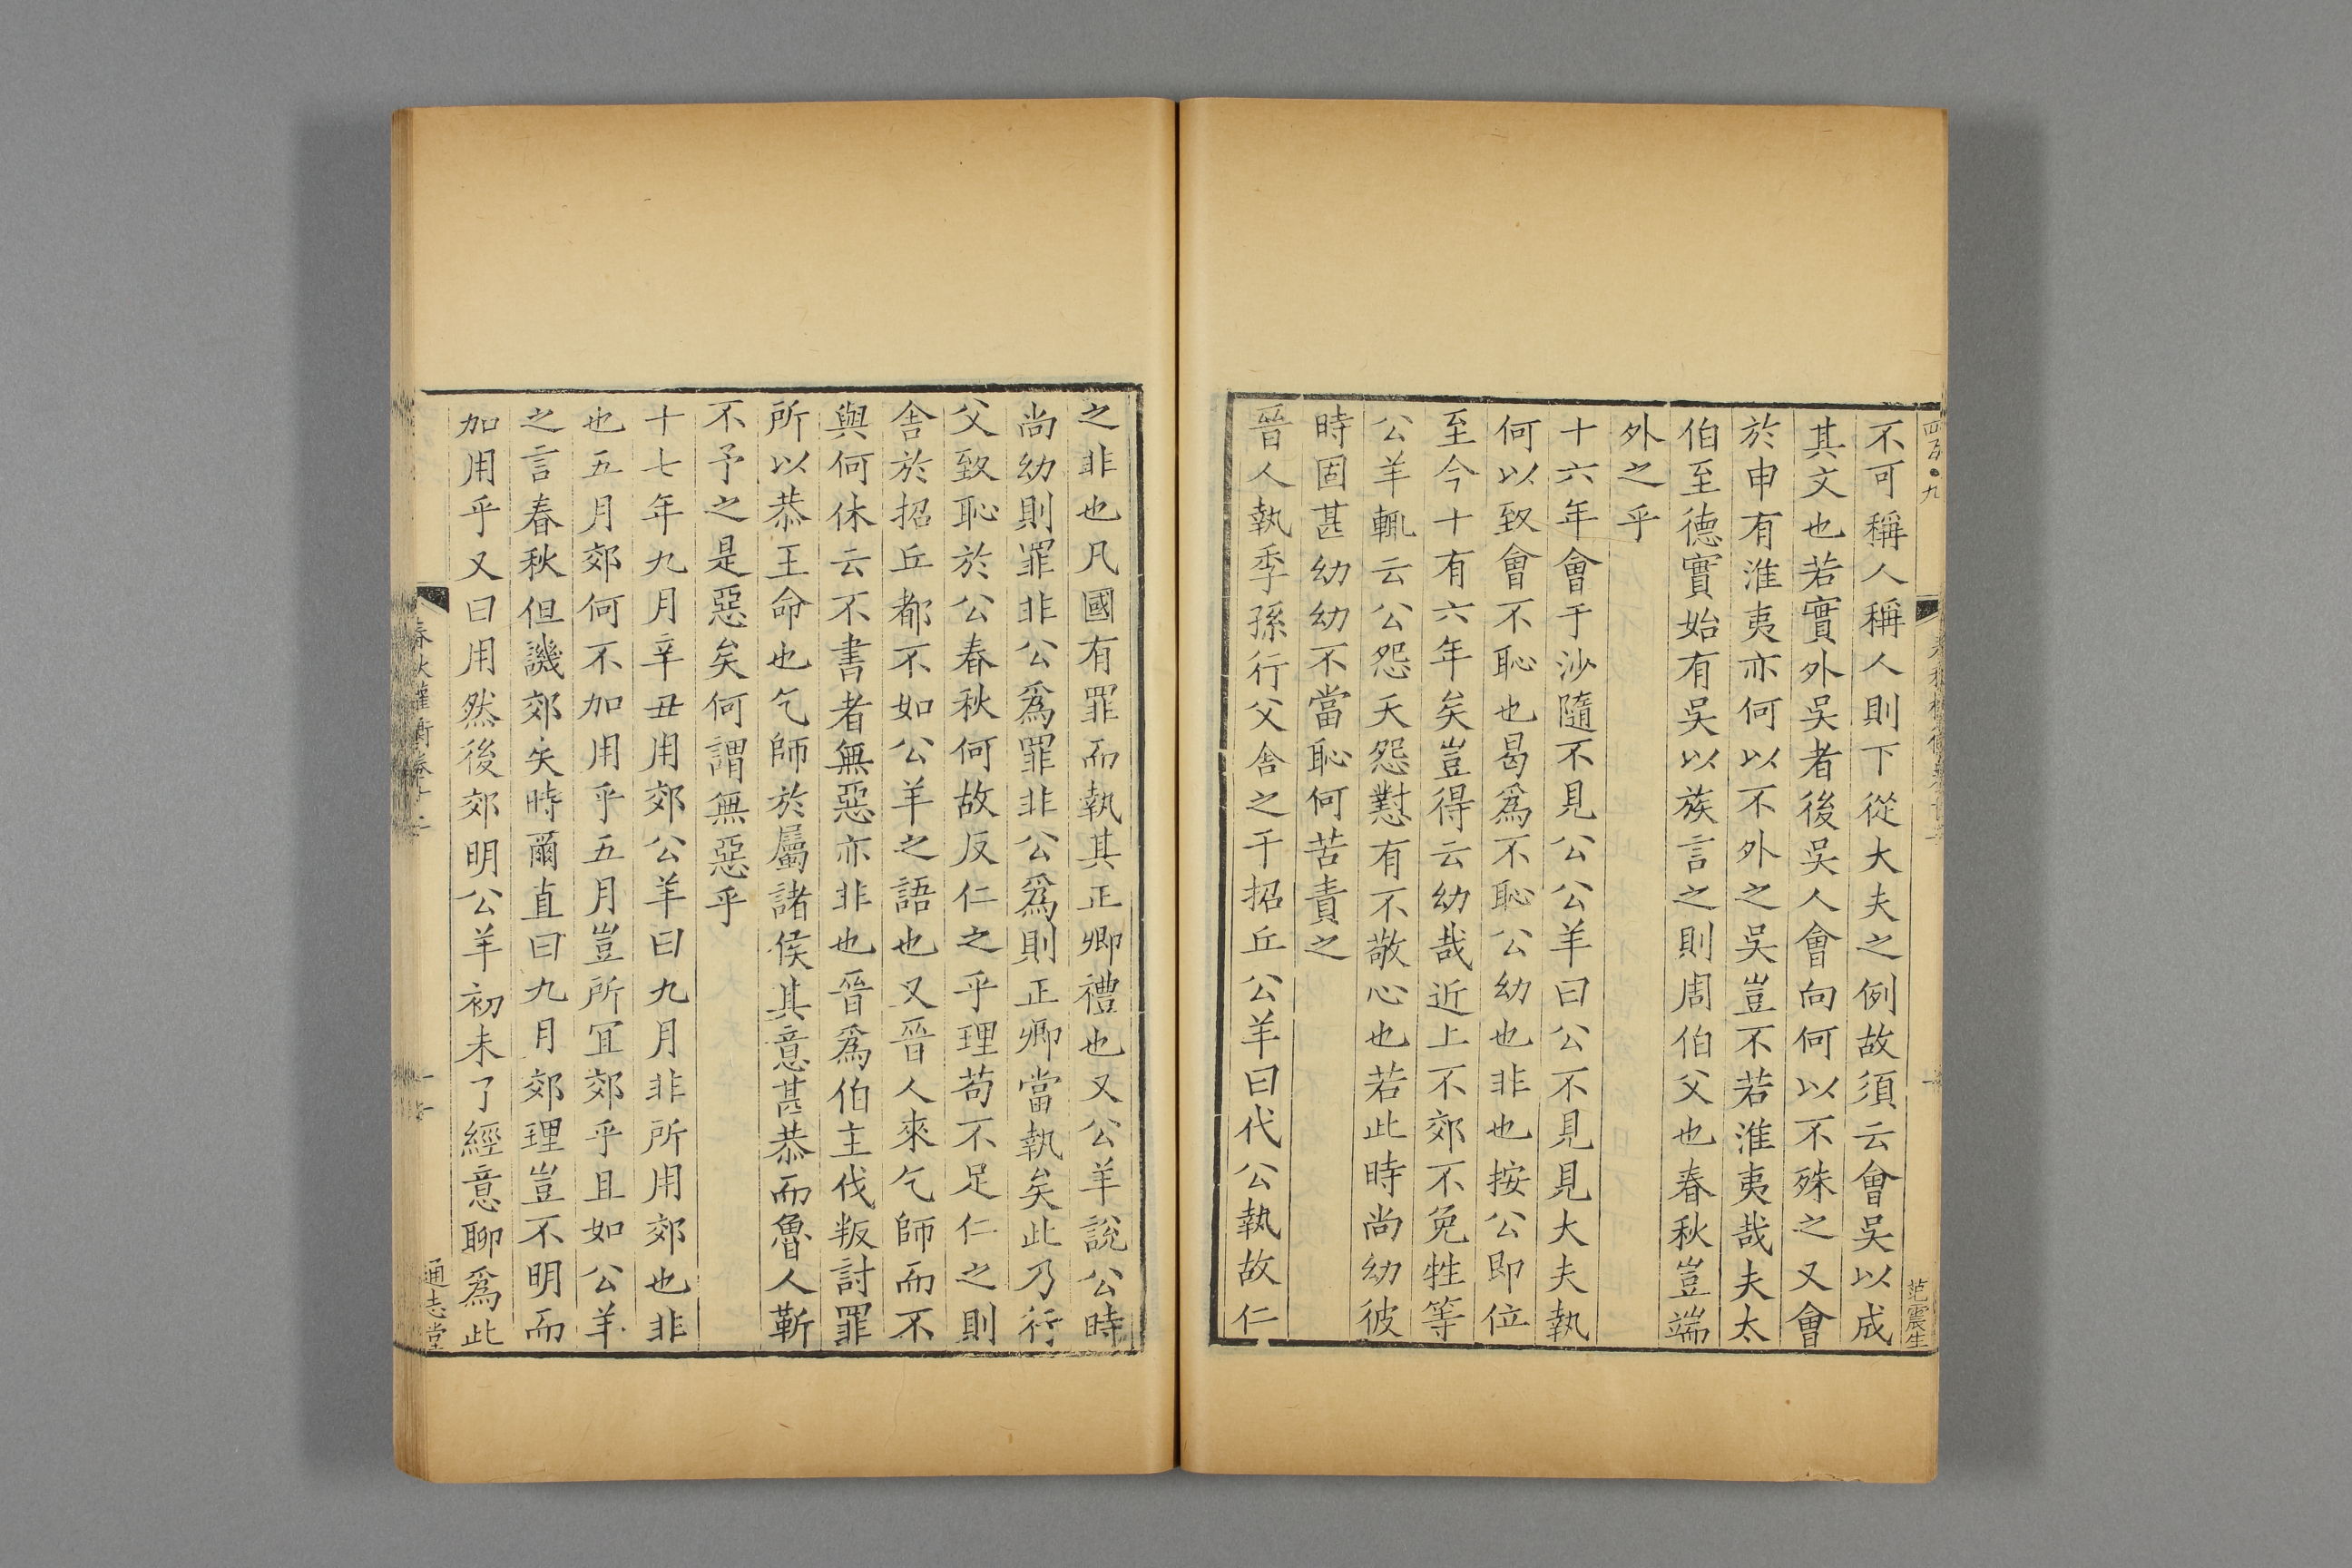 不可稱人稱人則下從大夫之例故須云會吳以成
其文也若實外吳者後吳人會向何以不殊之又會
於申有淮夷亦何以不外之吳豈不若淮夷哉夫太
伯至德實始有吳以族言之則周伯父也春秋豈端
外之乎
十六年會于沙隨不見公公羊曰公不見見大夫執
何以致會不恥也曷爲不恥公幼也非也按公即位
至今十有六年矣豈得云幼哉近上不郊不免牲等
公羊輒云公怨天怨懟有不敬心也若此時尚幼彼
時固甚幼幼不當恥何苦責之
晉人執季孫行父舎之于招丘公羊曰代公執故仁
范震生
之非也凡國有罪而執其正卿禮也又公羊說公時
尚幼則罪非公爲罪非公爲則正卿當執矣此乃行
父致恥於公春秋何故反仁之乎理苟不足仁之則
舎於招丘都不如公羊之語也又晉人來乞師而不
與何休云不書者無惡亦非也晉爲伯主伐叛討罪
所以恭王命也乞師於屬諸侯其意甚恭而魯人靳
不予之是惡矣何謂無惡乎
十七年九月辛丑用郊公羊曰九月非所用郊也非
也五月郊何不加用乎五月豈所宜郊乎且如公羊
之言春秋但譏郊矣時爾直曰九月郊理豈不明而
加用乎又曰用然後郊明公羊初未了經意聊爲此
春秋權衡卷十二
通志堂